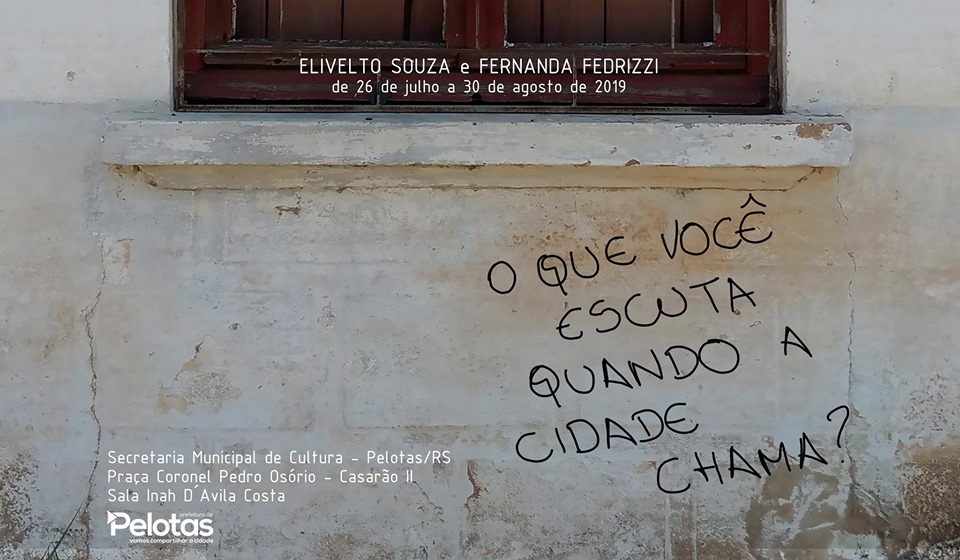 ELIVELTO SOUZA e FERNANDA FEDRIZZI
de 26 de julho a 30 de agosto de 2019
O QUE VOCÊ
ESCUTA
QUANDO A
CIDADE
CHAMA?
Secretaria Municipal de Cultura - Pelotas/RS
Praça Coronel Pedro Osório - Casarão II
Sala Inah D´Avila Costa
prefeitura de
Pelotas
vamos compartilhar a cidade